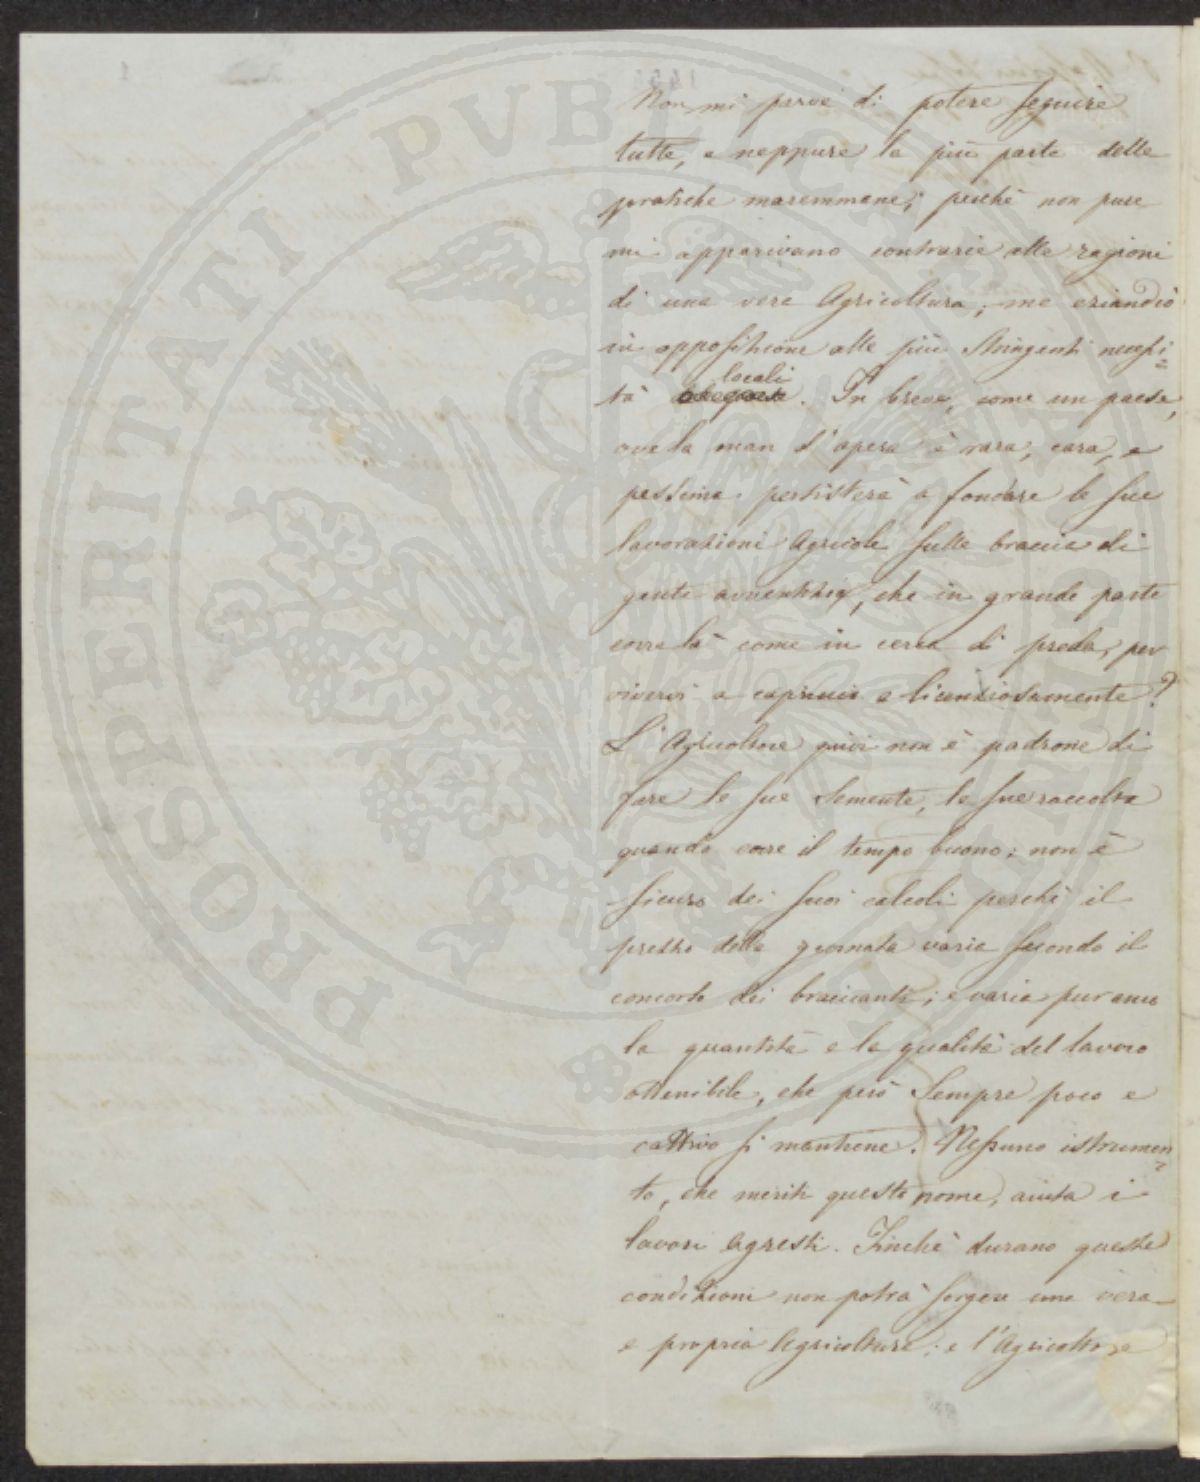 PROSPERITATI PUBLICAE AUGENDAE
Non mi parve di potere seguire
tutte, e neppure la più parte delle
pratiche maremmane; perchè non pure
mi apparivano contrarie alle ragioni
di una vera Agricoltura, ma eziandio
in opposizione alle più stringenti necessi=
locali
tà. In breve, come un paese,
ove la man d'opera è rara, cara, e
pessima persisterà a fondare le sue
lavorazioni Agricole sulle braccia di
gente avventizia, che in grande parte
corre là come in cerca di preda, per
vivervi a capriccio e licenziosamente?
L'Agricoltore quivi non è padrone di
fare le sue semente, le sue raccolte
quando corre il tempo buono; non è
sicuro dei suoi calcoli perchè il
prezzo della giornata varia secondo il
concorso dei braccianti; e varia pur anco
la quantità e la qualità del lavoro
ottenibile, che però sempre poco e
cattivo si mantiene. Nessuno istrumen=
to, che meriti questo nome, aiuta i
lavori agresti. Finchè durano queste
condizioni non potrà sorgere una vera
e propria Agricoltura; e l'Agricoltore